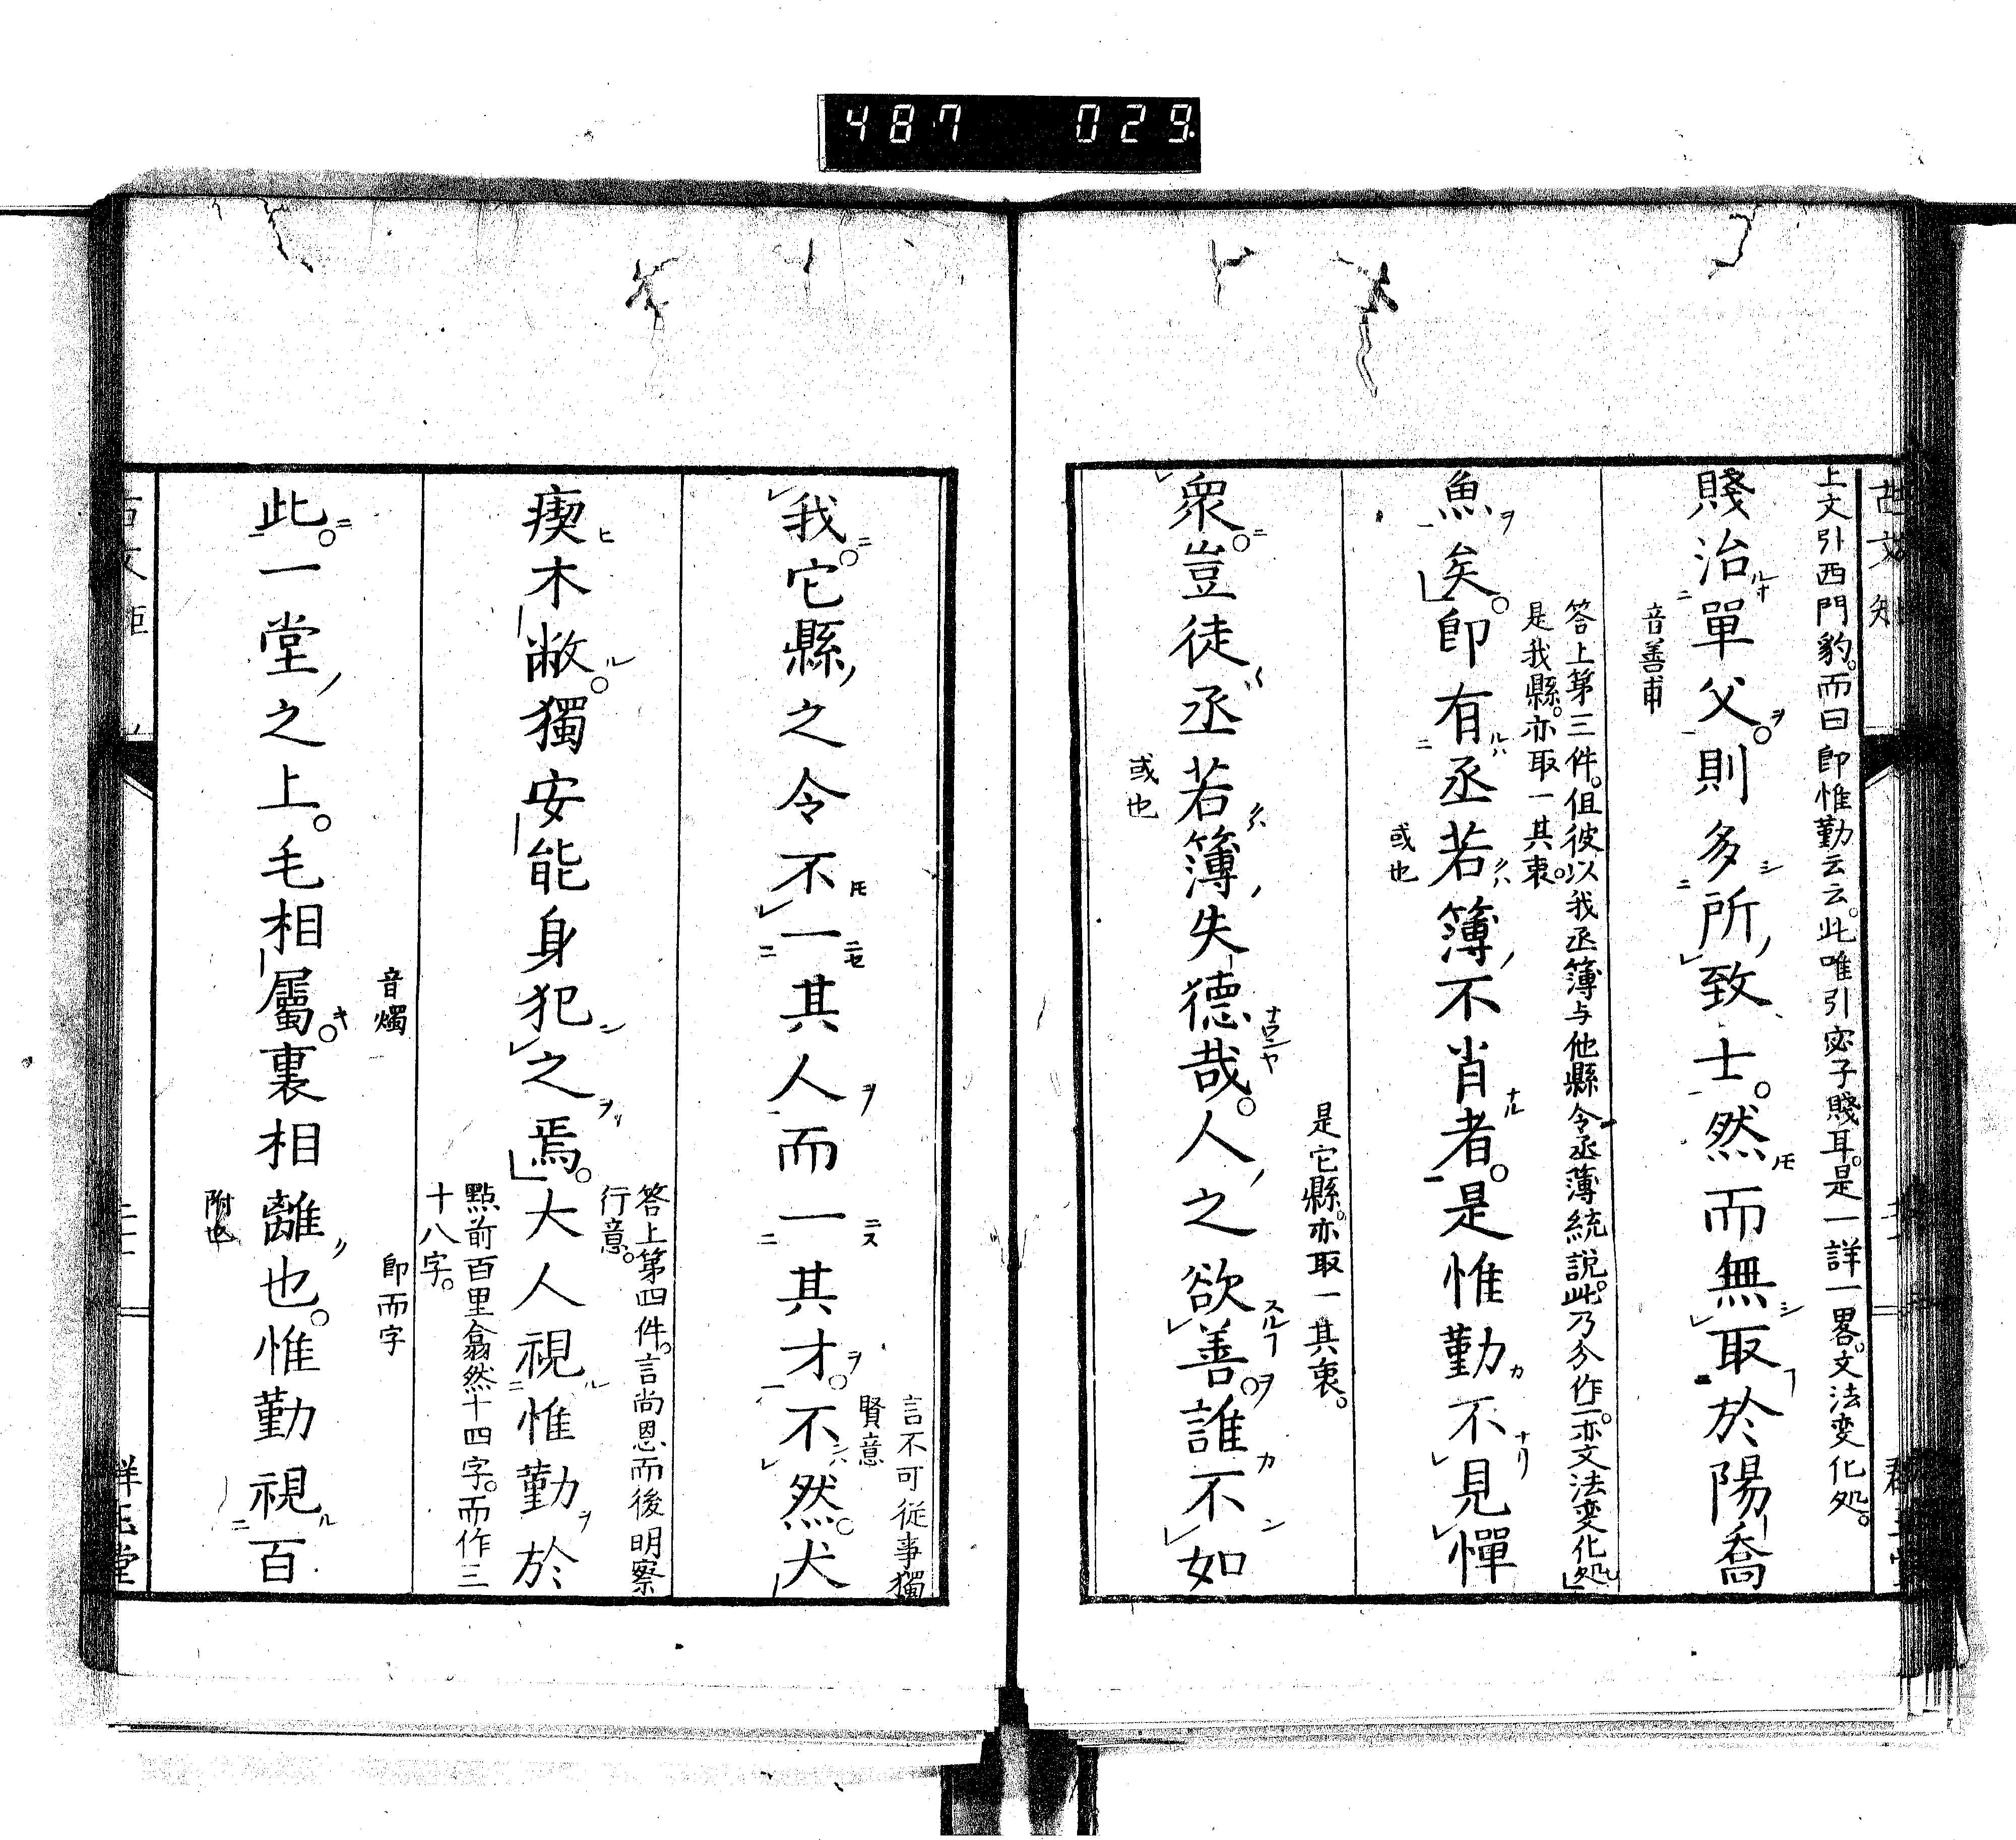 487 029
上文引西門豹。而曰即惟勤云云。此唯引宓子賤耳。是一詳一畧。文法変化処。
賤治單父。則多所致士。然而無取於陽喬
音善甫
答上第三件。但彼以我丞簿与他縣令丞薄統說。此乃分作一。亦文法変化処
是我縣。亦取一其衷。
魚矣。即有丞若簿不肖者。是惟勤不見憚
或也
是它縣。亦取一其衷。
衆。豈徒丞若簿失德哉。人之欲善。誰不如
或也
言不可從事獨
賢意
我。它縣之令不一其人而一其才。不然。犬
答上第四件。言尚恩而後明察
行意。
瘈木敝。獨安能身犯之焉。大人視惟勤於
點前百里翕然十四字。而作三
十八字。
音燭
即而字
此。一堂之上。毛相屬。裏相離也。惟勤視百
附也